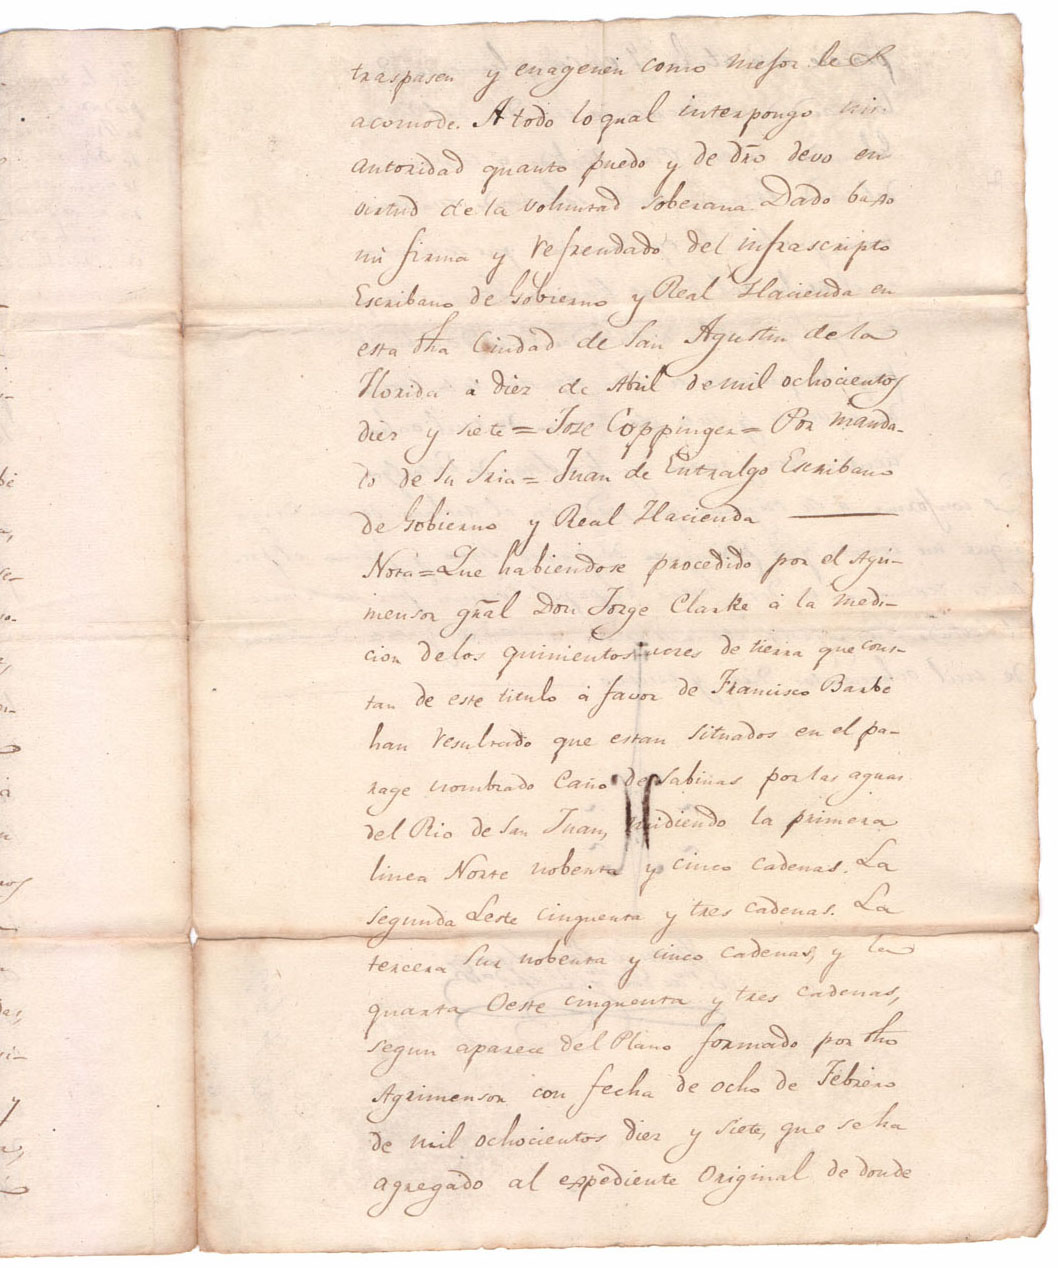 traspasen y enagenen como mejor le
acomode. A todo lo qual interpongo mi
autoridad quanto puedo y de dro devo en
virtud de la voluntad soberana. Dado baxo
mi firma y refrendado del infrascripto
Escribano de Gobierno y Real Hacienda en
esta dha Ciudad de San Agustin de la
Florida á diez de Abril de mil ochocientos
diez y siete = Jose Coppinger = Por manda-
do de Su Sria = Juan de Entralgo Escribano
de Gobierno y Real Hacienda
Nota = Que habiendose procedido por el Agri-
mensor gral Don Jorge Clarke á la medi-
cion de los quinientos acres de tierra que cons-
tan de este titulo á favor de Francisco Barbé
han resultado que estan situados en el pa-
rage nombrado Caño de Sabinas por las aguas
del Rio de San Juan, midiendo la primera
linea Norte nobenta y cinco cadenas. La
segunda Leste cinquenta y tres cadenas. La
tercera Sur nobenta y cinco cadenas, y la
quarta Oeste cinquenta y tres cadenas,
segun aparece del Plano formado por dho
Agrimensor con fecha de ocho de Febrero
de mil ochocientos diez y siete, que se ha
agregado al expediente Original de donde